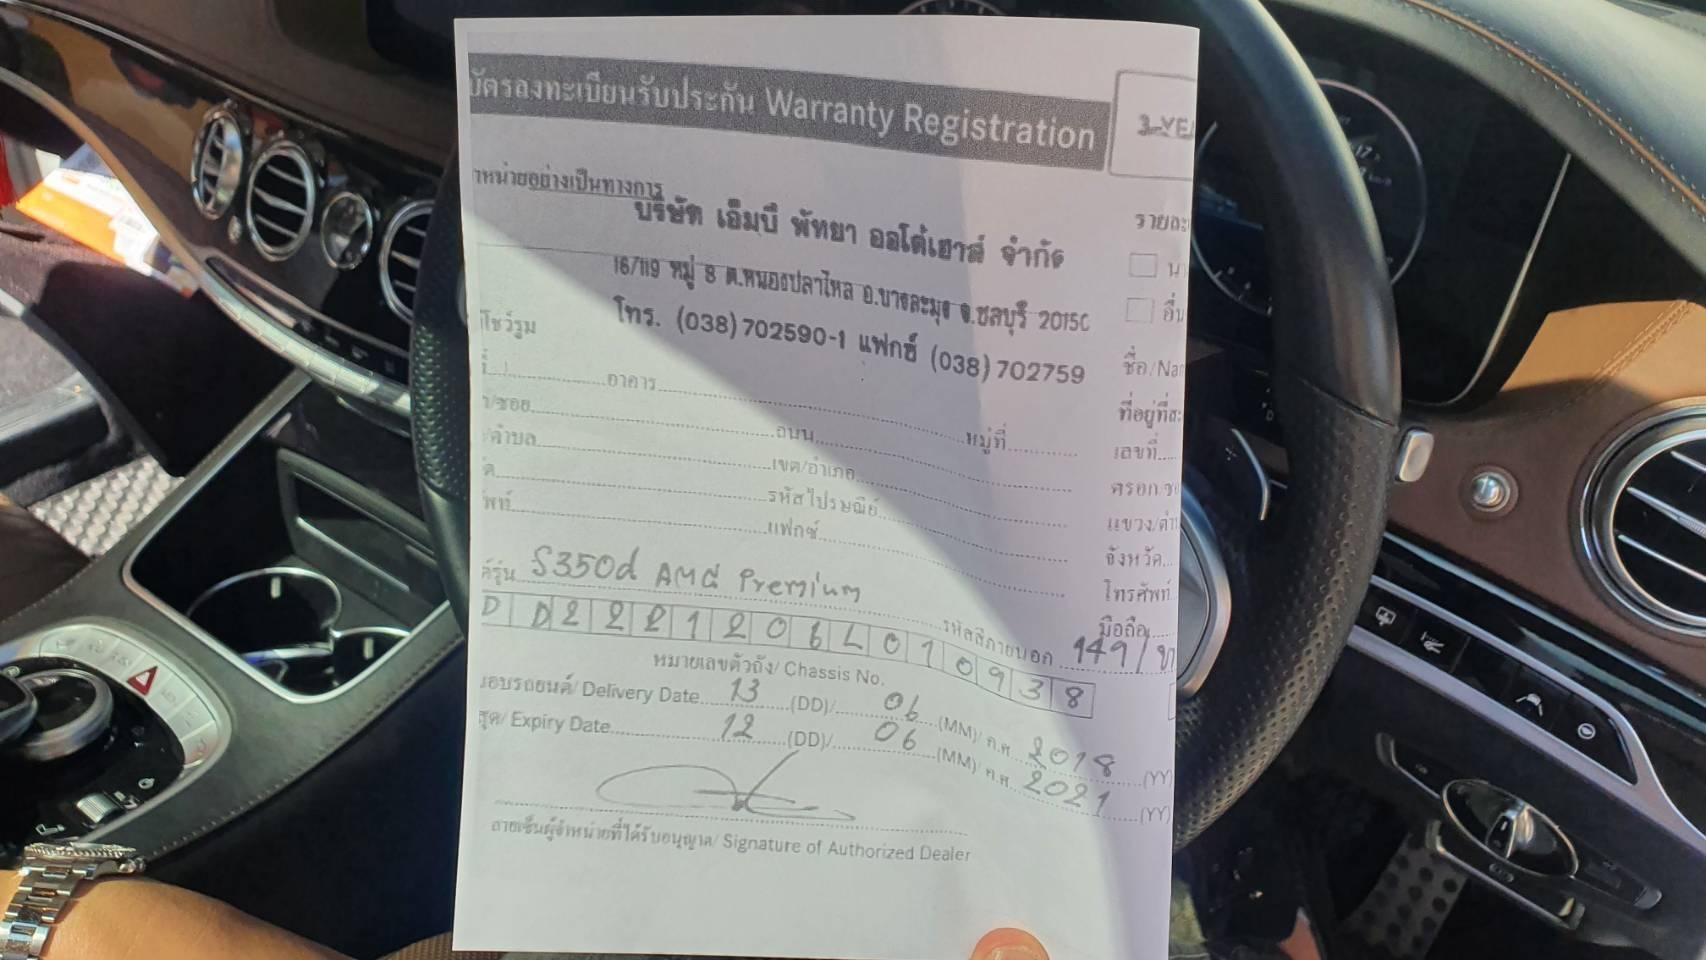 บัตรลงทะเบียนรับประกัน Warranty Registration
3-YEA
าหน่ายอย่างเป็นทางการ
บริษัท เอ็มบี พัทยา ออโต้เฮาส์ จำกัด
16/119 หมู่ 8 ต.หนองปลาไหล อ.บางละมุง จ.ชลบุรี 20150
โทร. (038) 702590-1 แฟกซ์ (038) 702759
โชว์รูม
อาคาร
หมู่ที่
/ซอย
ถนน
/ตำบล
เขต/อำเภอ
รหัสไปรษณีย์
แฟกซ์
รุ่น S350d AMG Premium
รหัสสีภายนอก 149/ขา
D D 2 2 2 1 2 0 6 L 0 1 0 9 3 8
หมายเลขตัวถัง/ Chassis No.
มอบรถยนต์/ Delivery Date 13 (DD)/ 06 (MM)/ ค.ศ. 2018 (YY)
สุด/ Expiry Date 12 (DD)/ 06 (MM)/ ค.ศ. 2021 (YY)
ลายเซ็นผู้จำหน่ายที่ได้รับอนุญาต/ Signature of Authorized Dealer
รายละ
นา
อื่น
ชื่อ/Nam
ที่อยู่ที่สะ
เลขที่
ตรอก/ซอ
แขวง/ตำ
จังหวัด
โทรศัพท์
มือถือ